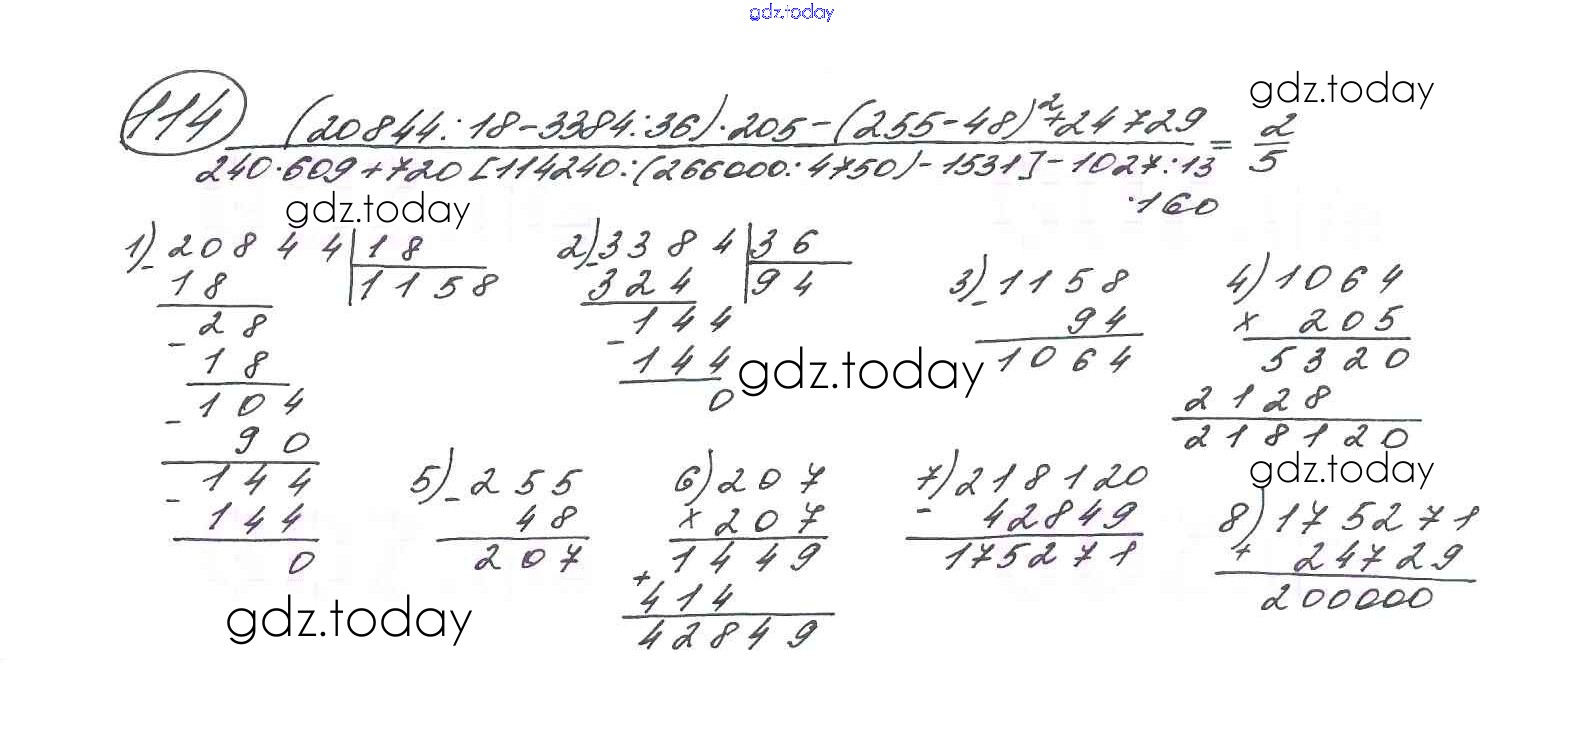 gdz.today
114 (20844:18-3384:36)·205-(255-48)²+24729 gdz.today
240·609+720[114240:(266000:4750)-1531]-1027:13 = 2/5
·160
gdz.today
1) 20844 | 18
- 18 | 1158
28
- 18
104
- 90
144
- 144
0
2) 3384 | 36
- 324 | 94
144
- 144
0
gdz.today
3) 1158
- 94
1064
4) 1064
× 205
5320
2128
218120
gdz.today
5) 255
- 48
207
6) 207
× 207
1449
+ 414
42849
7) 218120
- 42849
175271
8) 175271
+ 24729
200000
gdz.today